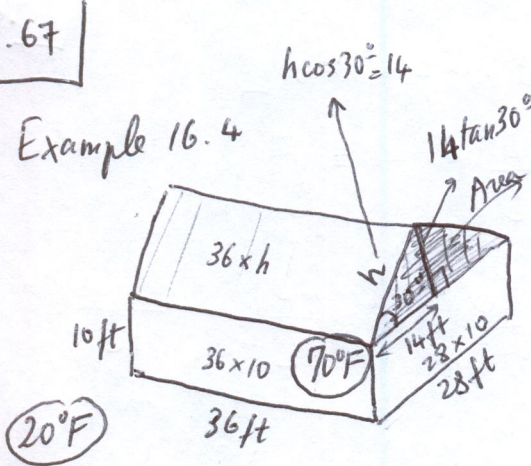 .67
hcos30°=14
Example 16.4
14tan30°
Area
36×h
h
30°
10ft
36×10
70°F
14ft
28×10
28ft
20°F
36ft